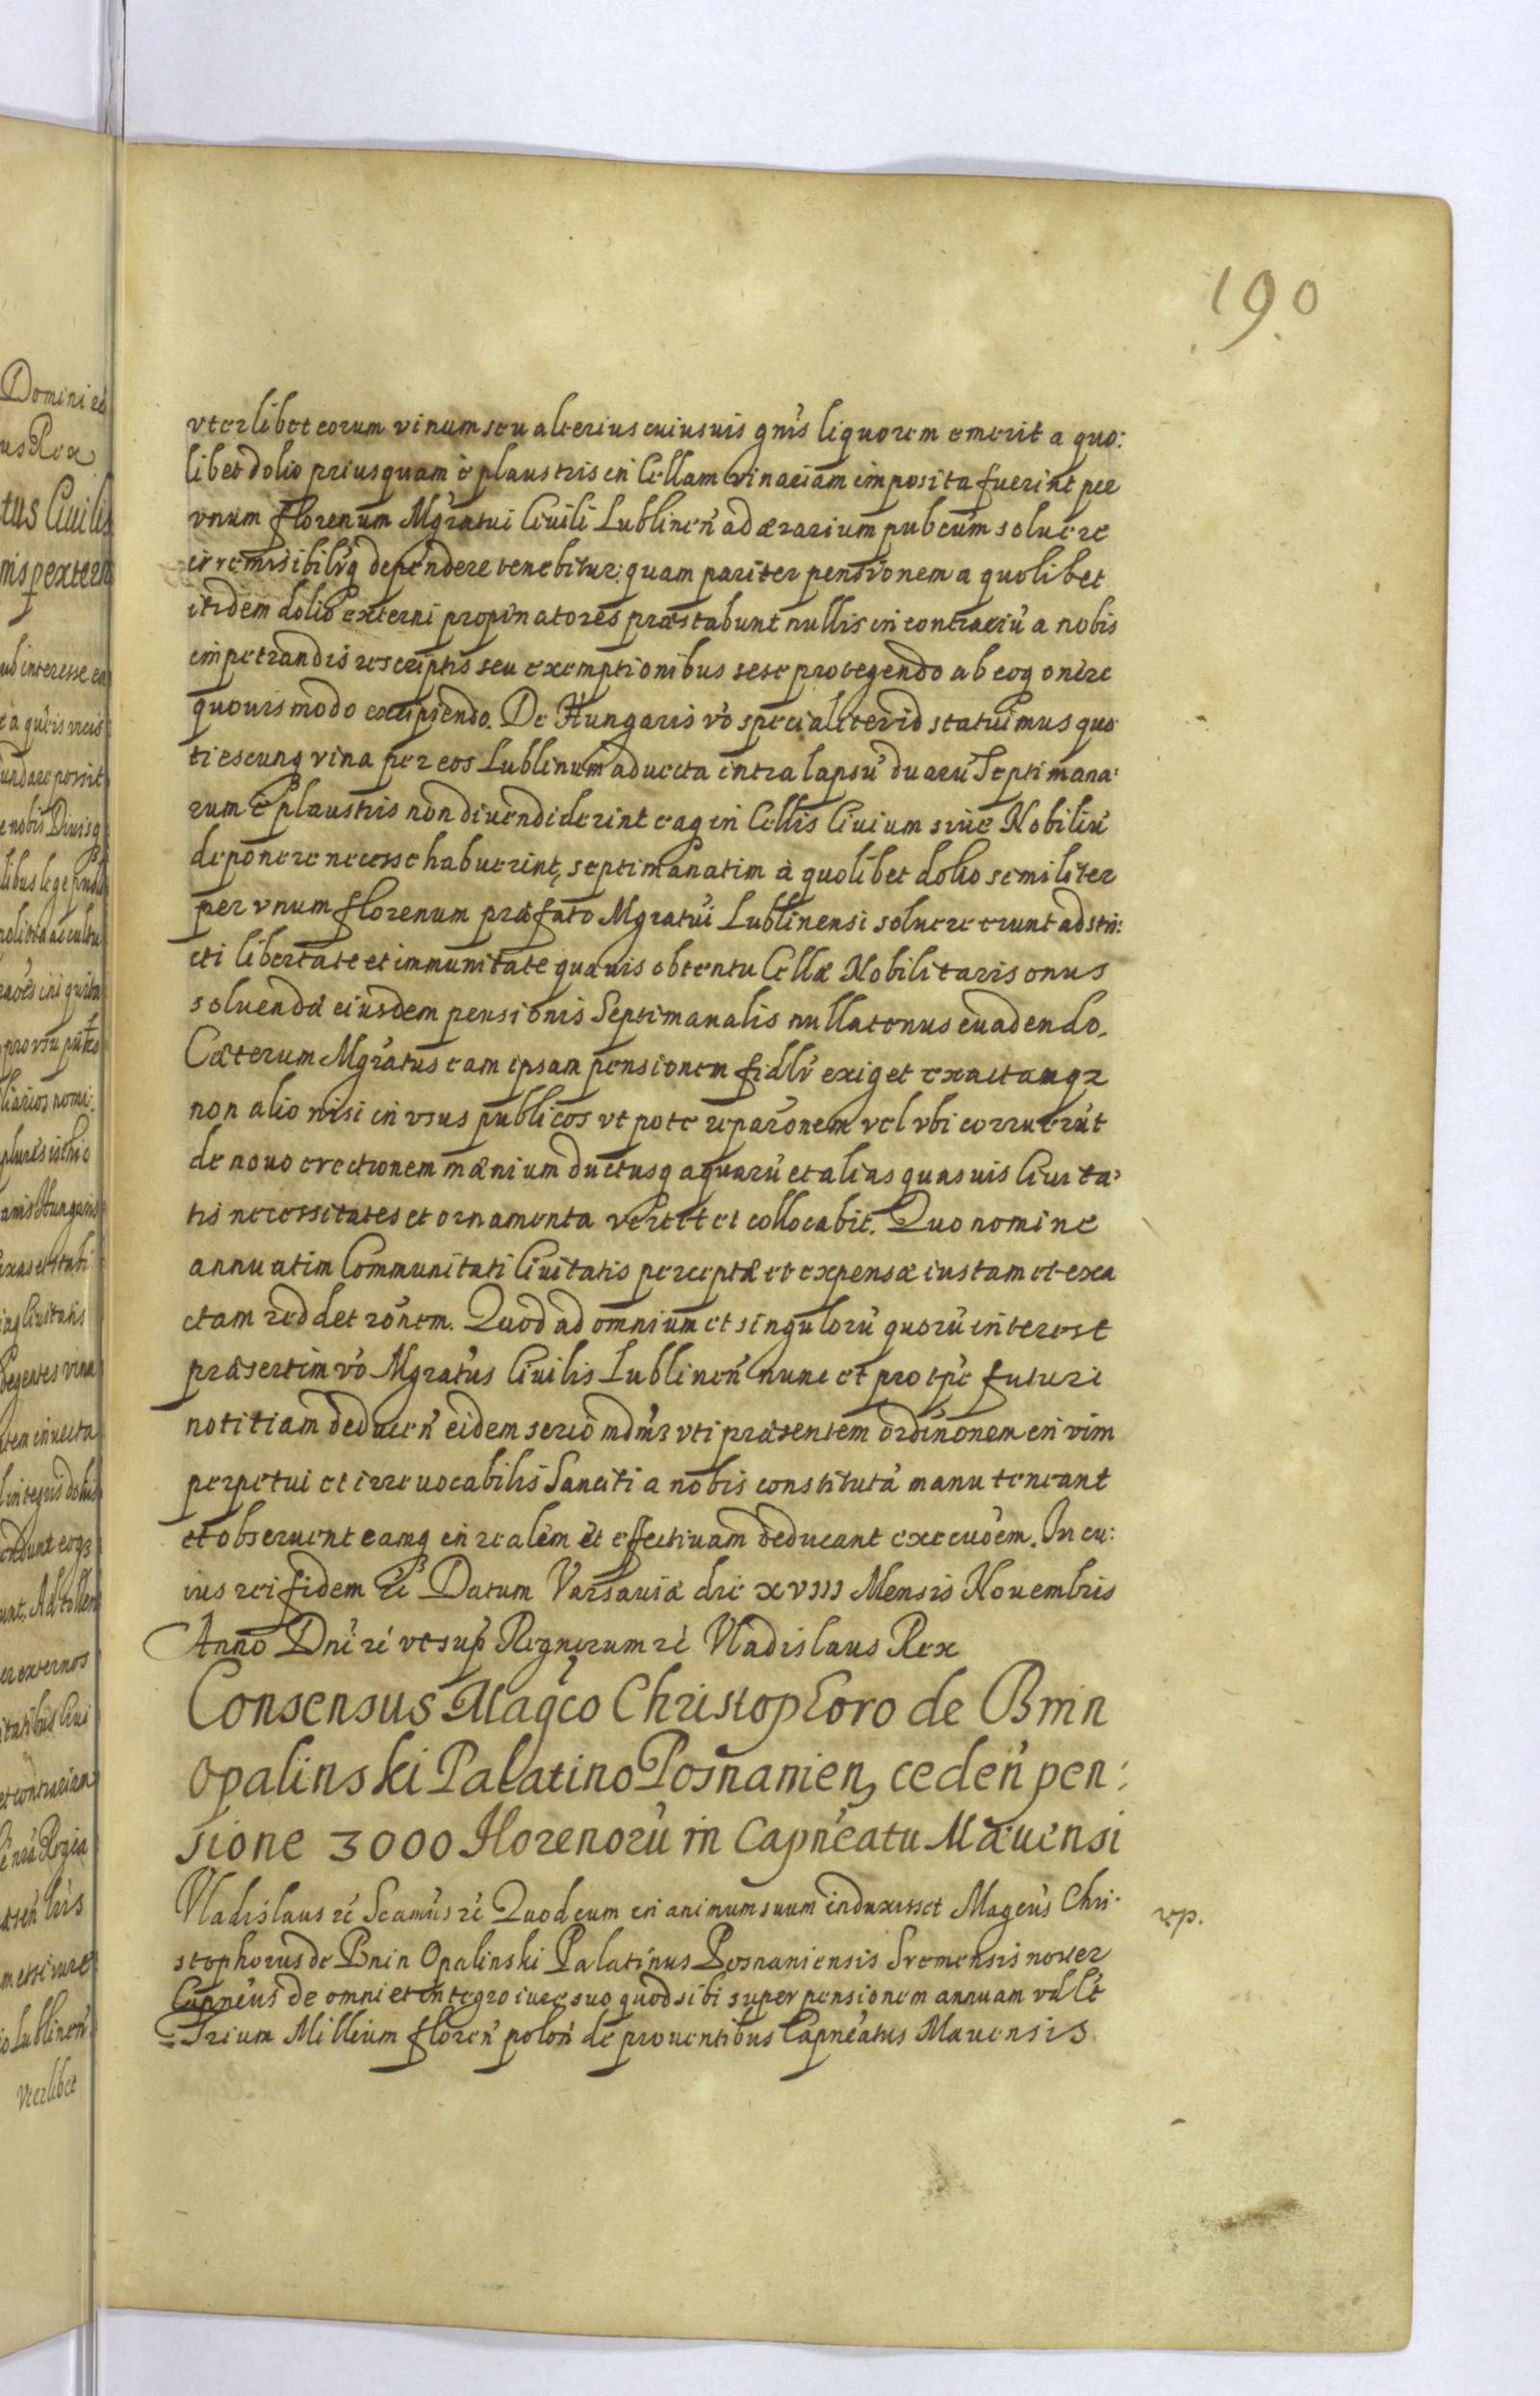 190
vterlibet eorum vinum seu alterius cuiusuis gnis liquorem emerit a quo:
libet dolio priusquam è plaustris in Cellam vinariam imposita fuerint per
vnum florenum Mgratui Ciuili Lublinen ad ærarium pubcum soluere
irremisibiliq dependere tenebitur: quam pariter pensionem a quolibet
itidem dolio externi propinatores præstabunt nullis in contrariu a nobis
impetrandis rescriptis seu exemptionibus sese protegendo ab eoq onere
quouis modo excipiendo. De Hungaris vo specialiter id statuimus quo
tiescunq vina per eos Lublinum aduecta intra lapsu duaru Septimana:
rum è plaustris non diuendiderint eaq in Cellis Ciuium siue Nobiliu
deponere necesse habuerint, septimanatim à quolibet dolio similiter
per vnum florenum præfato Mgratui Lublinensi soluere erunt adstri:
cti libertate et immunitate quauis obtentu Cellæ Nobilitaris onus
soluendæ eiusdem pensionis Septimanalis nullatenus euadendo.
Cæterum Mgratus eam ipsam pensionem fidlr exiget exactamqz
non alio nisi in vsus publicos vt pote reparonem vel vbi corruerut
de nouo erectionem mænium ductusq aquaru et alias quasuis Ciuita:
tis necessitates et ornamenta vertet et collocabit. Quo nomine
annuatim Communitati Ciuitatis perceptæ et expensæ iustam et exa
ctam reddet ronem. Quod ad omnium et singuloru quoru interest
præsertim vo Mgratus Ciuilis Lublinen nunc et pro tpe futuri
notitiam deducen eidem serio mdmz vti præsentem ordinonem in vim
perpetui et irreuocabilis Sanciti a nobis constituta manu teneant
et obseruent eamq in realem et effectiuam deducant executem. In cu:
ius rei fidem rc Datum Varsauiæ die XVIII Mensis Nouembris
Anno Dni rc vt sup Regnorum rc Vladislaus Rex
Consensus Magco Christophoro de Bnin
Opalinski Palatino Posnanien, ceden pen:
sione 3000 Florenoru in Capneatu Mæuensi
Vladislaus rc Scamus rc Quod cum in animum suum induxisset Magcus Chri: rp.
stophorus de Bnin Opalinski Palatinus Posnaniensis Sremensis noster
Capneus de omni et integro iure suo quod sibi super pensionem annuam
Trium Millium floren polon de prouentibus Capneatus Mæuensis